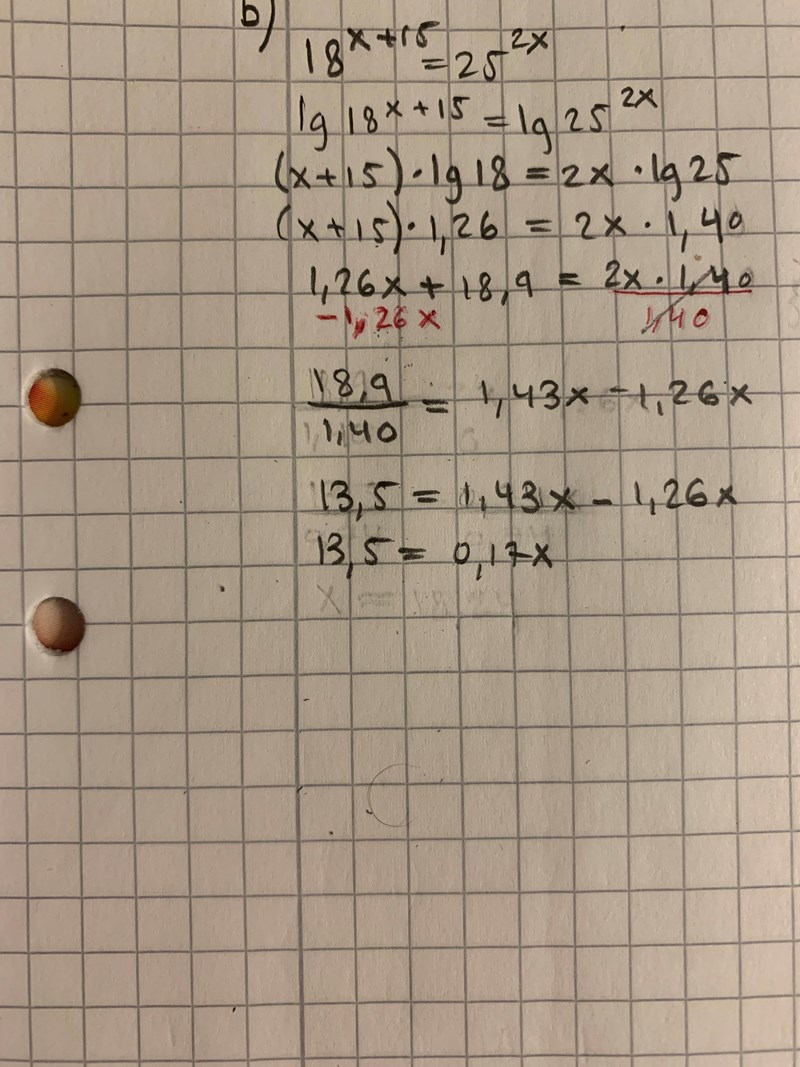 b)
18^(x+15) = 25^(2x)
lg 18^(x+15) = lg 25^(2x)
(x+15) · lg 18 = 2x · lg 25
(x+15) · 1,26 = 2x · 1,40
1,26x + 18,9 = 2x · 1,40
-1,26x 1,40
18,9/1,40 = 1,43x - 1,26x
13,5 = 1,43x - 1,26x
13,5 = 0,17x